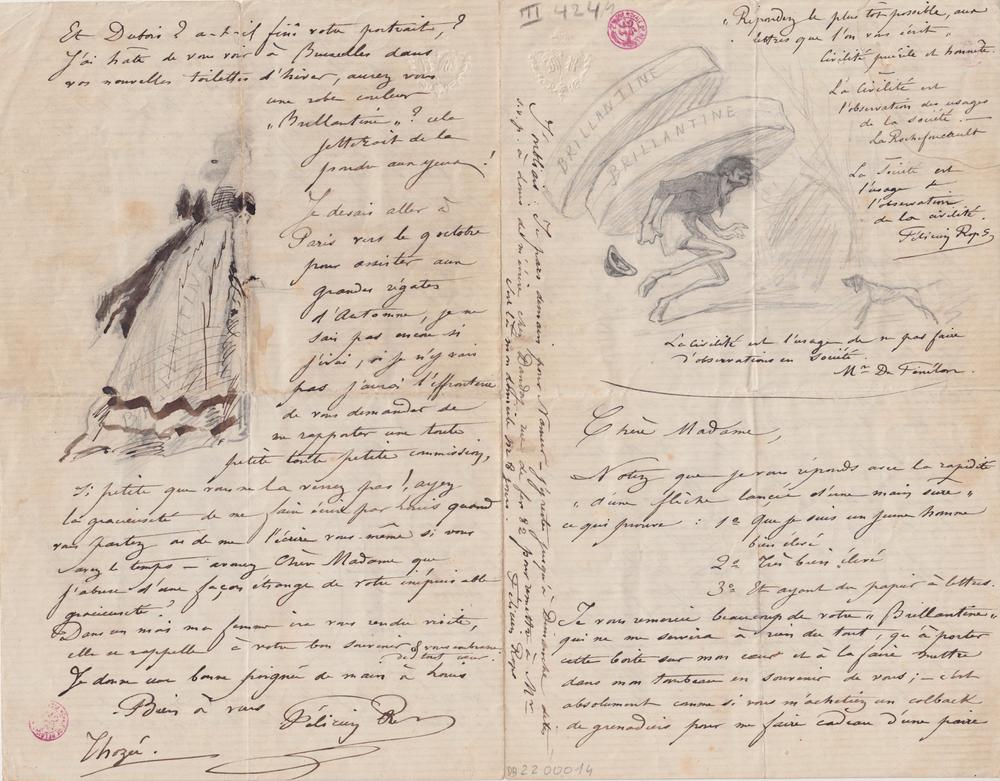 III 4241
"Répondez le plus tôt possible, aux
lettres que l'on vous écrit"
Civilité puérile et honnête
La Civilité est
l'observation des usages
de la société.
La Rochefoucault
La Société est
l'usage de
l'observation
de la civilité.
Félicien Rops
BRILLANTINE
BRILLANTINE
La Civilité est l'usage de ne pas faire
d'observations en société
Mr De Fénélon.
Chère Madame,
Notez que je vous réponds avec la rapidité
"d'une flèche lancée d'une main sûre"
ce qui prouve : 1o Que je suis un jeune homme
bien élevé
2o Très bien élevé
3o Et ayant du papier à lettres.
Je vous remercie beaucoup de votre "Brillantine"
qui ne me servira à rien du tout, qu'à porter
cette boîte sur mon cœur et à la faire mettre
dans mon tombeau en souvenir de vous ; – c'est
absolument comme si vous m'achetiez un colback
de grenadiers pour me faire cadeau d'une paire
Et Dubois? a-t-il fini votre portrait,?
J'ai hâte de vous voir à Bruxelles dans
vos nouvelles toilettes d'hiver, aurez vous
une robe couleur
"Brillantine"? cela
jetterait de la
poudre aux yeux!
Je devais aller à
Paris vers le 9 octobre
pour assister aux
grandes régates
d'Automne, je ne
sais pas encore si
j'irai, si je n'y vais
pas j'aurai l'effronterie
de vous demander de
me rapporter une toute
petite toute petite commission,
si petite que vous ne la verrez pas!, ayez
la gracieuseté de me faire écrire par Louis quand
vous partez ou de me l'écrire vous-même si vous
avez le temps – avouez Chère Madame que
j'abuse d'une façon étrange de votre inépuisable
gracieuseté?
Dans un mois ma femme ira vous rendre visite,
elle se rappelle à votre bon souvenir & vous embrasse
de tout cœur.
Je donne une bonne poignée de main à Louis
Bien à vous
Félicien R
Thozée.
J'oubliais : Je pars demain pour Namur – j'y reste jusqu'à Dimanche dites
s.v.p. à Louis de m'écrire chez Dandoy, rue de fer 82 pour remettre à Mr
Félicien Rops
22 00014